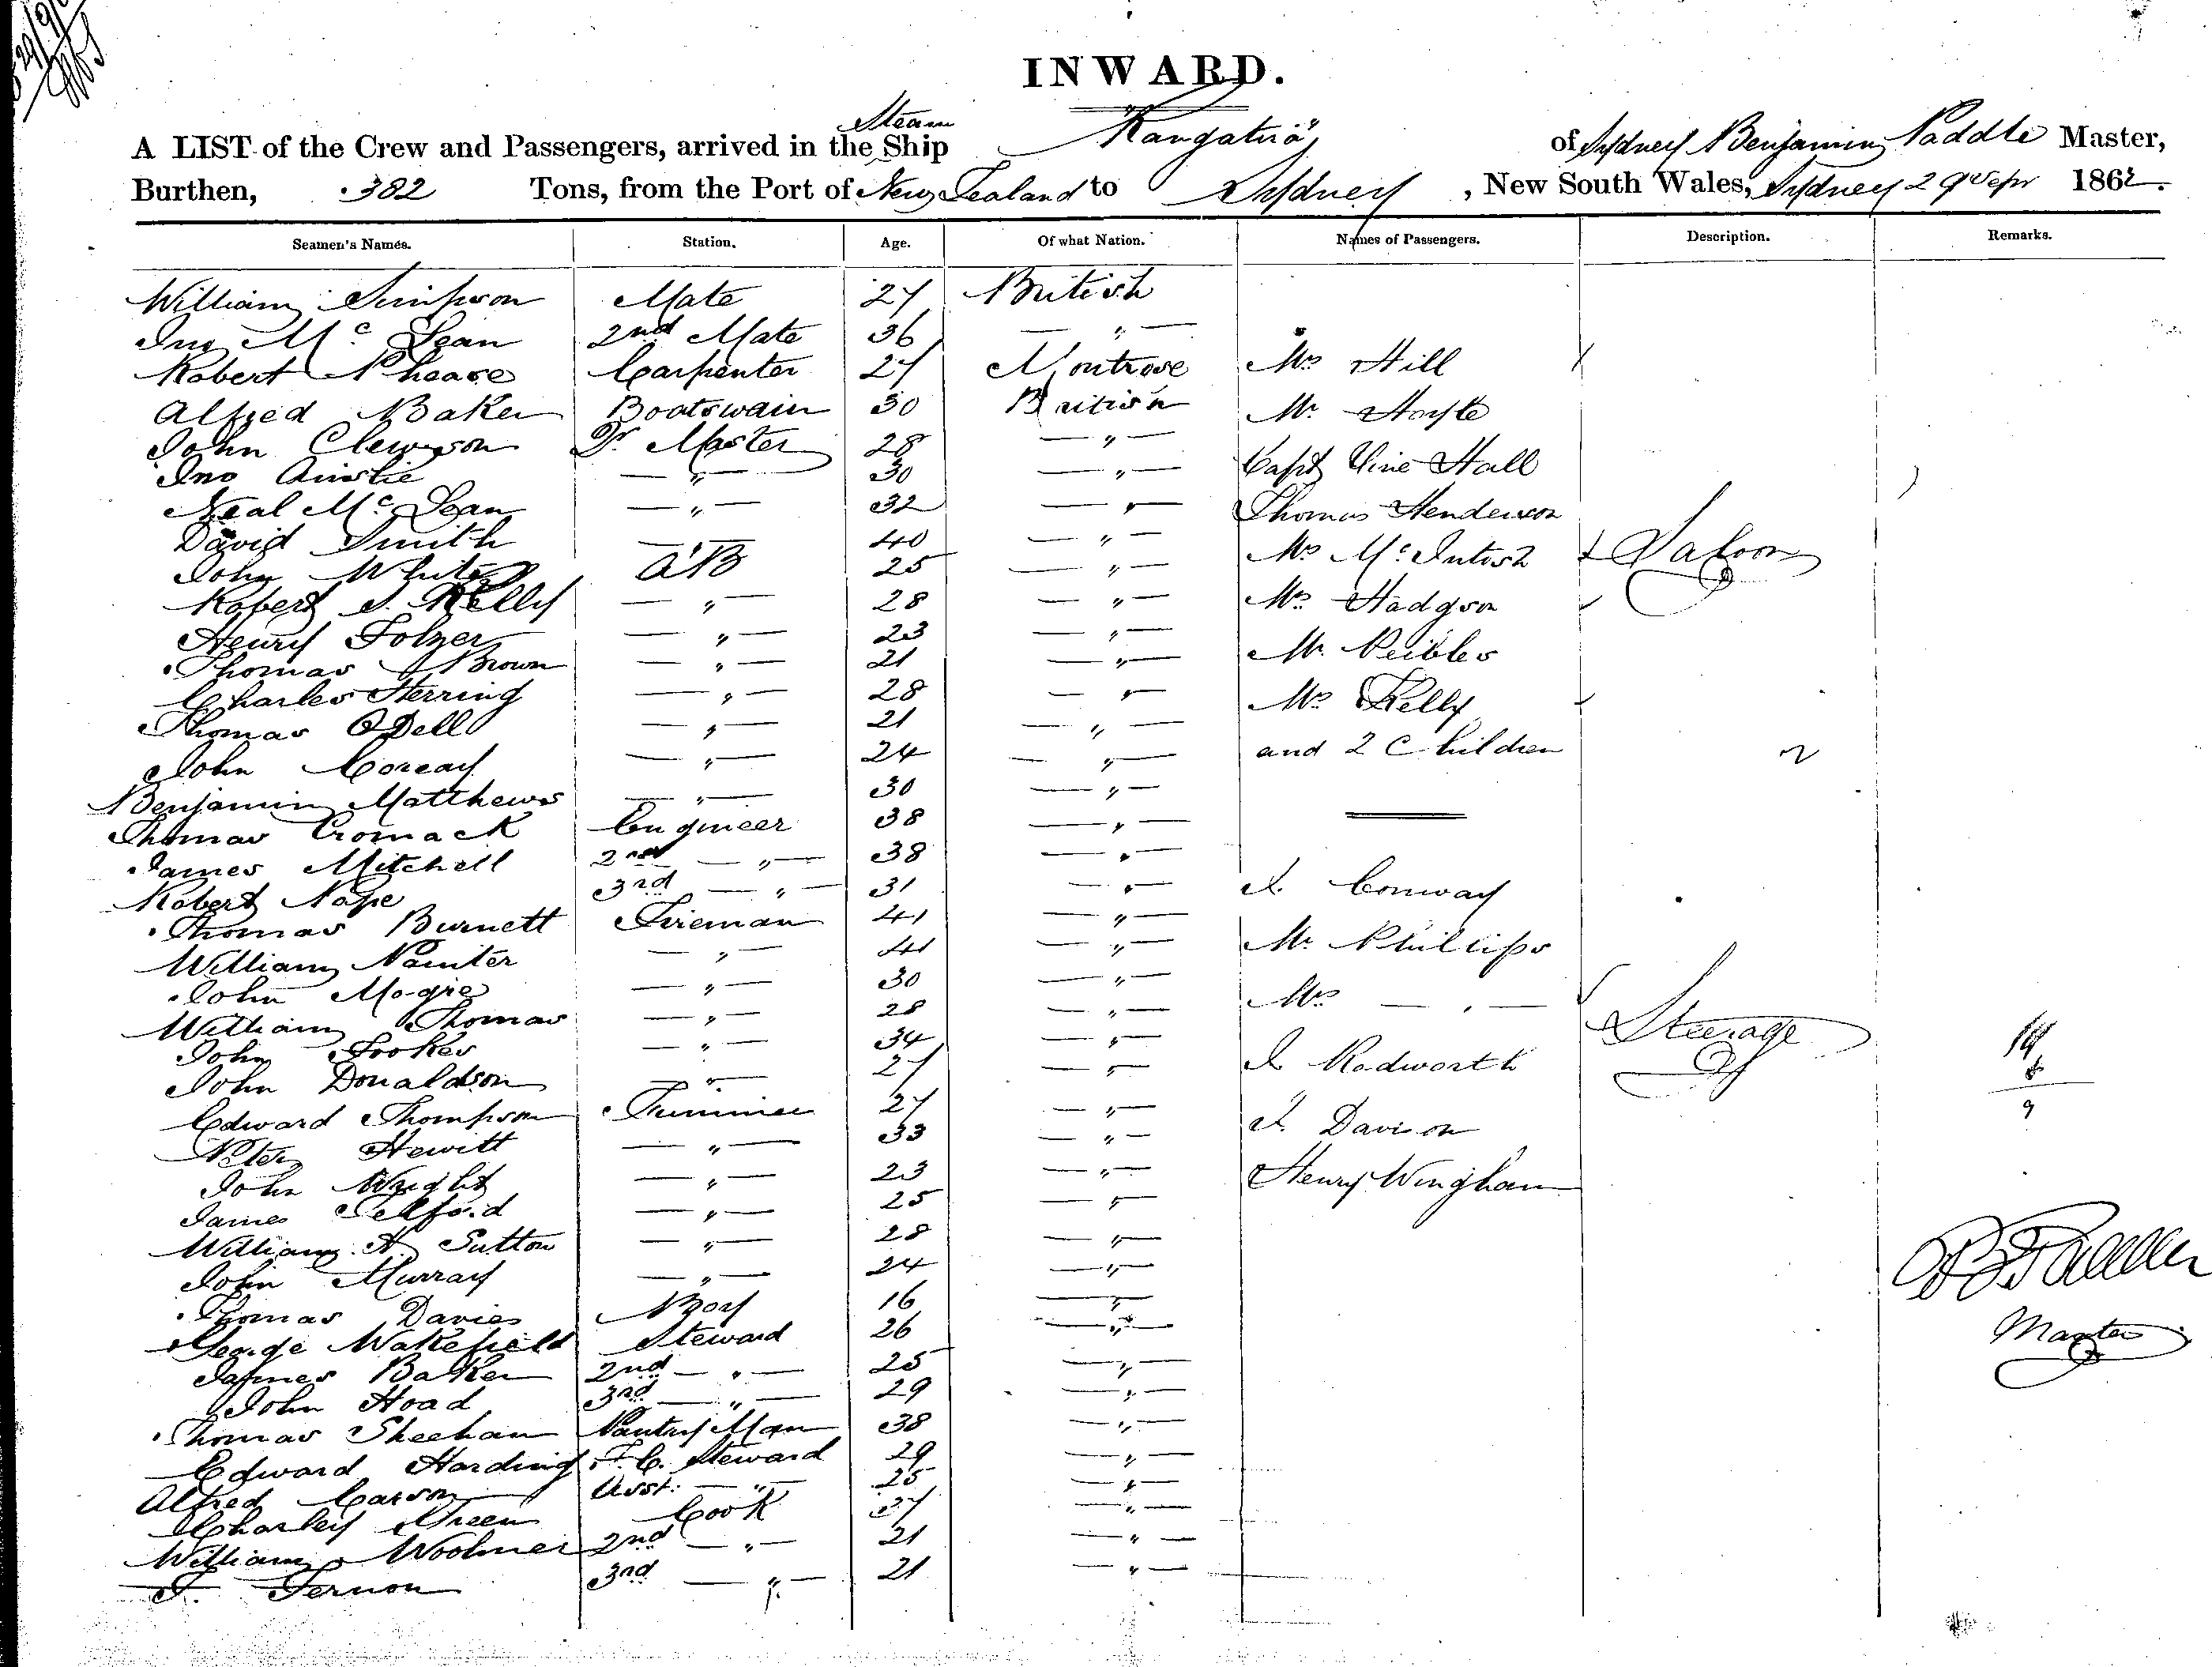 INWARD.
Steam
A LIST of the Crew and Passengers, arrived in the Ship "Rangatira" of Sydney Benjamin Paddle Master,
Burthen, 382 Tons, from the Port of New Zealand to Sydney, New South Wales, Sydney 29 Sepr 1862.
Seamen's Names. Station. Age. Of what Nation. Names of Passengers. Description. Remarks.
William Simpson Mate 27 British
Jno McLean 2nd Mate 36 — " —
Robert Phease Carpenter 27 Montrose Mrs Hill
Alfred Baker Boatswain 30 British Mr Hoyte
John Clewson Qr Master 28 — " —
Jno Ainslie — " — 30 — " — Capt Vine Hall
Neal McLean — " — 32 — " — Thomas Henderson
David Smith — " — 40 — " — Mrs McIntosh Saloon
John White AB 25 — " —
Robert J. Kelly — " — 28 — " — Mrs Hodgson
Henry Folzer — " — 23 — " —
Thomas Brown — " — 21 — " — Mr. Peibles
Charles Herring — " — 28 — " — Mrs Kelly
Thomas ODell — " — 21 — " —
John Coreay — " — 24 — " — and 2 Children 2
Benjamin Matthews — " — 30 — " —
Thomas Cromack Engineer 38 — " —
James Mitchell 2nd — " — 38 — " —
Robert Pape 3rd — " — 31 — " — J. Conway
Thomas Burnett Fireman 41 — " —
William Painter — " — 41 — " — Mr Phillips
John Mogie — " — 30 — " —
William Thomas — " — 28 — " — Mrs — " — Steerage
John Fookes — " — 34 — " —
John Donaldson — " — 27 — " — J Rodworth
Edward Thompson Trimmer 27 — " —
Peter Hewitt — " — 33 — " — J. Davison
John Wright — " — 23 — " — Henry Wingham
James Telford — " — 25 — " —
William H. Sutton — " — 28 — " —
John Murray — " — 24 — " —
Thomas Davies Boy 16 — " —
George Wakefield Steward 26 — " — Master
James Baker 2nd — " — 25 — " —
John Hoad 3rd — " — 29 — " —
Thomas Sheehan Pantry Man 38 — " —
Edward Harding F.C. Steward 29 — " —
Alfred Carson Asst. — " — 25 — " —
Charley Green Cook 37 — " —
William Woolmer 2nd — " — 21 — " —
J. Fernon 3rd — " — 21 — " —